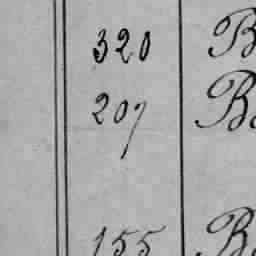 320 B
207 Ba
155 Ba